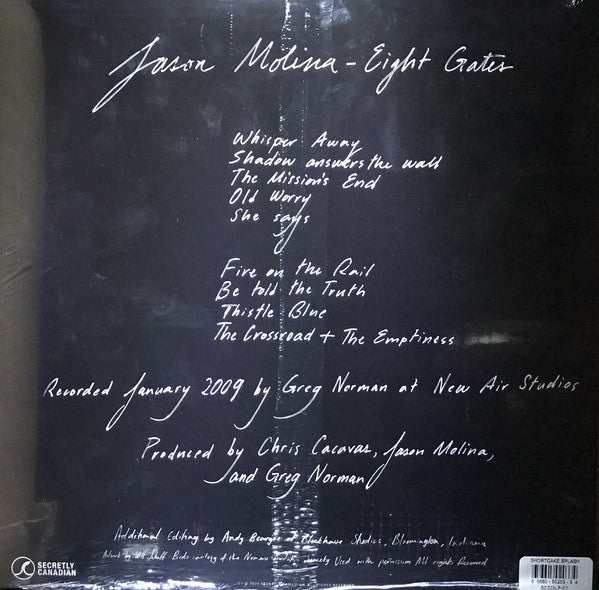 Jason Molina - Eight Gates
Whisper Away
Shadow answers the wall
The Mission's End
Old Worry
She says
Fire on the Rail
Be told the Truth
Thistle Blue
The Crossroad + The Emptiness
Recorded January 2009 by Greg Norman at New Air Studios
Produced by Chris Cacavas, Jason Molina,
and Greg Norman
Additional Editing by Andy at Studios, Bloomington, Indiana
Artwork by Will Birds courtesy of the Used with permission All rights Reserved
SECRETLY
CANADIAN
SHORTCAKE SPLASH